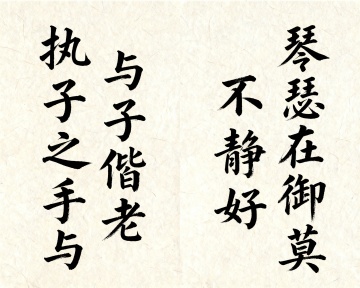 琴瑟在御莫
不静好
执子之手与
与子偕老